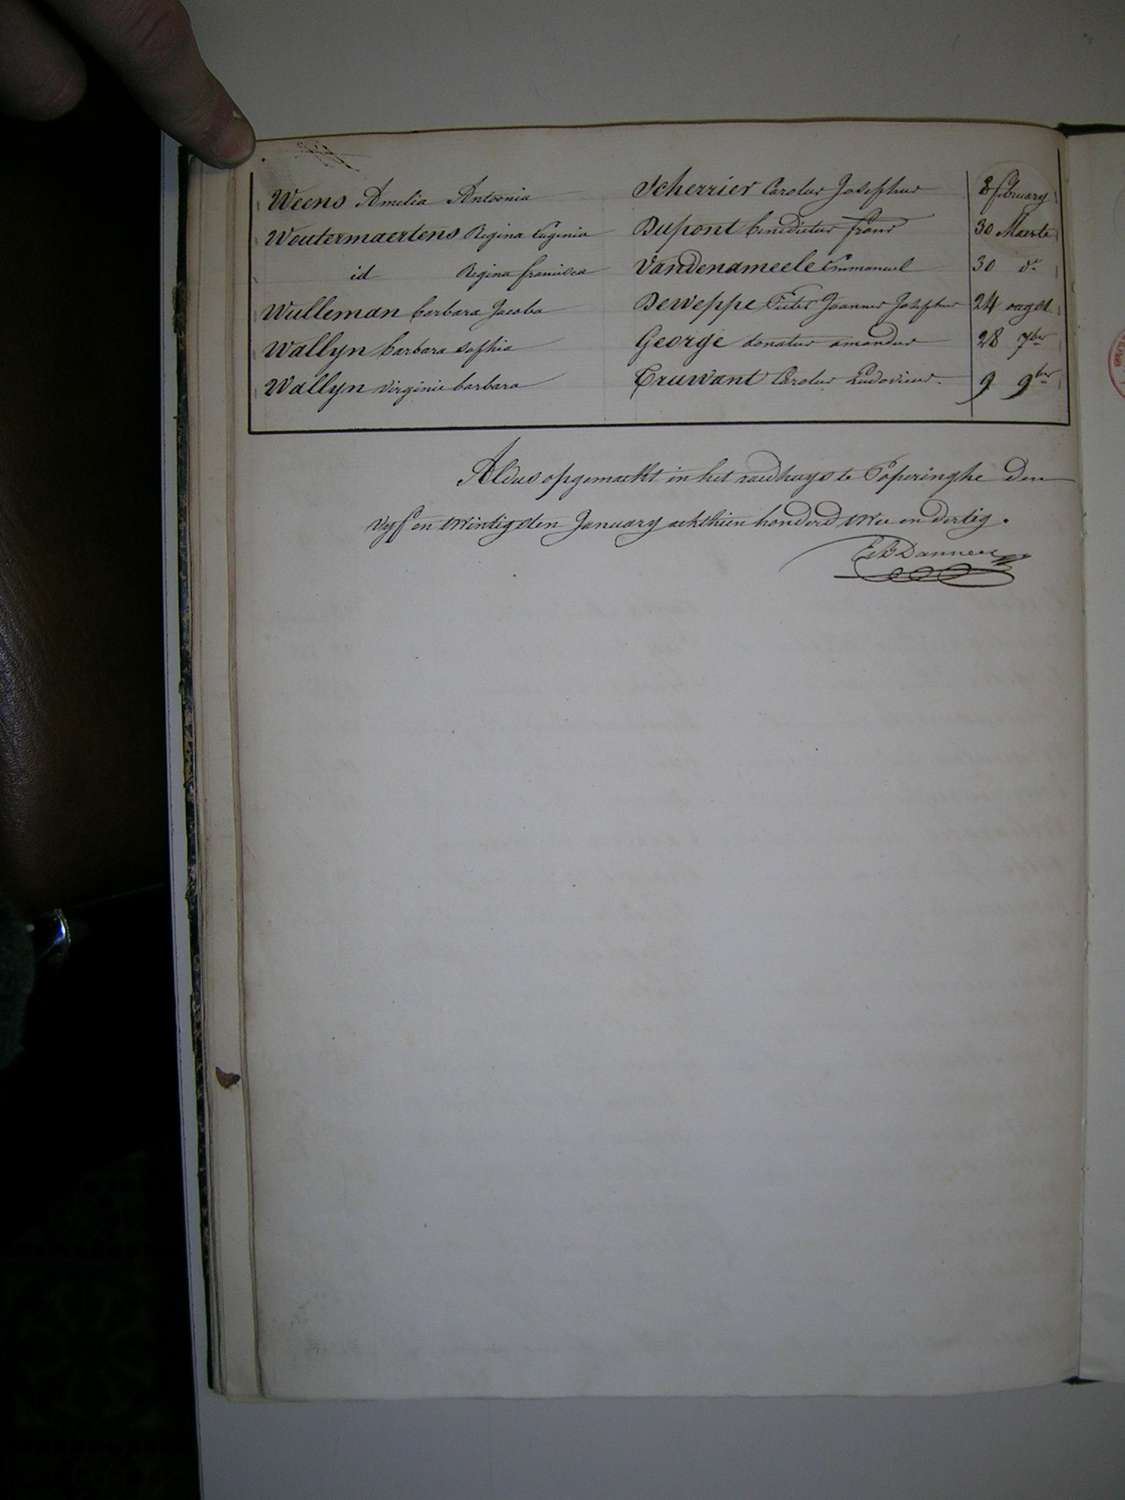 Weens Amelia Antoonia Scherrier Carolus Josephus 8 february
Woutermaertens Regina Eugenia Dupont benedictus frans 30 Maerte
id Regina francisca Vandenameele Emmanuel 30 do
Wulleman barbara Jacoba Deweppe Pieter Joannes Josephus 24 augst
Wallyn barbara sophia George donatus amandus 28 7ber
Wallyn virginie barbara Cruwant Carolus Ludovicus 9 9ber
Aldus opgemaekt in het raedhuys te Poperinghe den
vyf en twintigsten January achthien honderd twee en dertig.